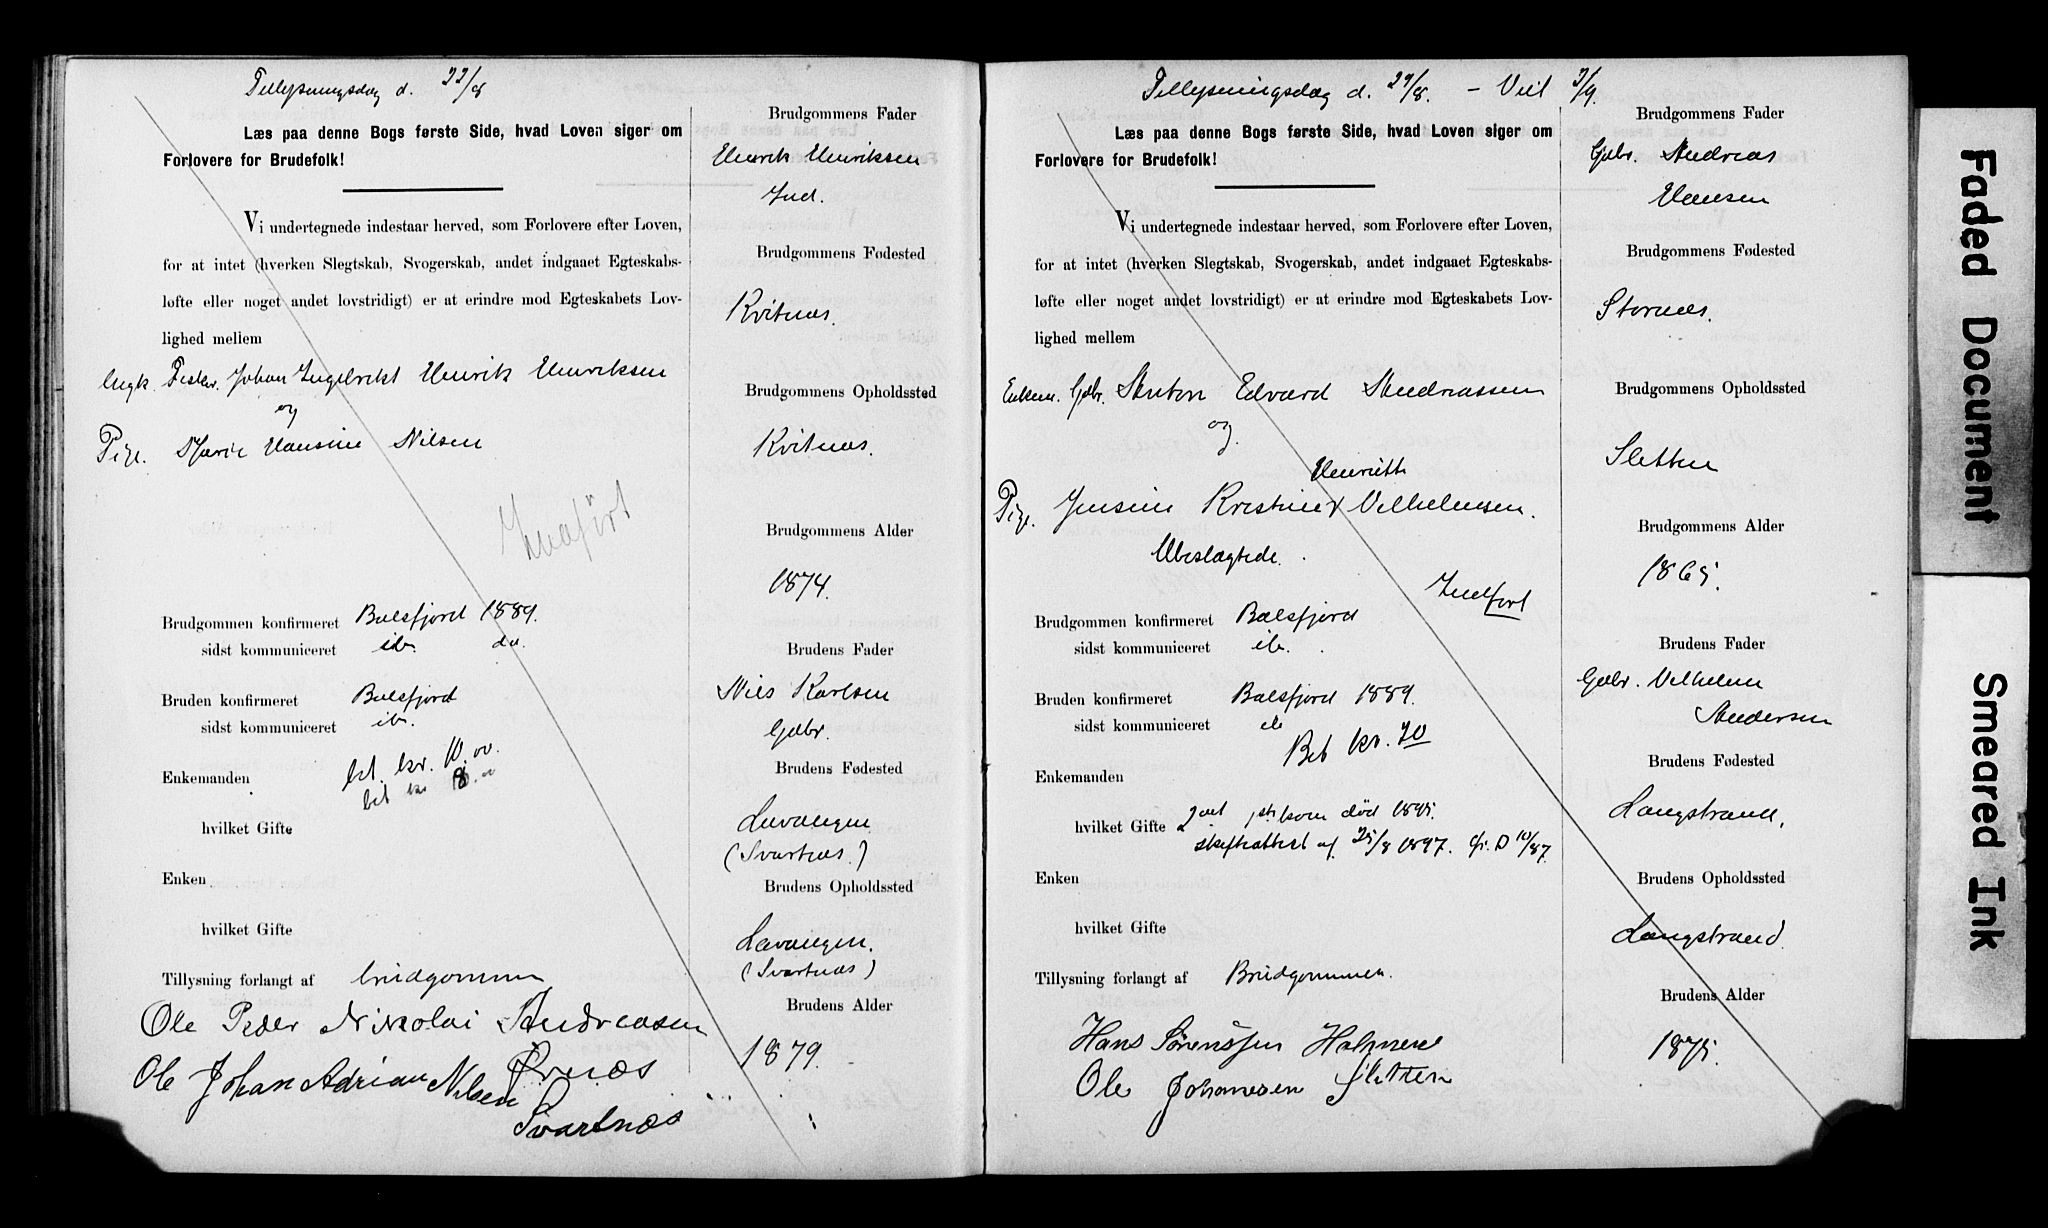 Tillysningsdag d. 22/8
Læs paa denne Bogs første Side, hvad Loven siger om
Forlovere for Brudefolk!
Vi undertegnede indestaar herved, som Forlovere efter Loven,
for at intet (hverken Slegtskab, Svogerskab, andet indgaaet Egteskabs-
løfte eller noget andet lovstridigt) er at erindre mod Egteskabets Lov-
lighed mellem
Ungk. Fisker. Johan Ingebrikt Henrik Henriksen
og
Pige. Marie Hansine Nilsen
Indført
Brudgommen konfirmeret Balsfjord 1889.
sidst kommuniceret ib. do.
Bruden konfirmeret Balsfjord
sidst kommuniceret ib.
Enkemanden bet. kr. 10.00.
bet kr 8.00
hvilket Gifte
Enken
hvilket Gifte
Tillysning forlangt af brudgommen
Ole Peder Nikolai Andreasen
Ørnæs
Ole Johan Adrian Nilsen
Svartnæs
Brudgommens Fader
Henrik Henriksen
Ind.
Brudgommens Fødested
Kvitnæs.
Brudgommens Opholdssted
Kvitnæs.
Brudgommens Alder
1874.
Brudens Fader
Nils Karlsen
Gdbr.
Brudens Fødested
Lavangen
(Svartnæs.)
Brudens Opholdssted
Lavangen.
(Svartnæs)
Brudens Alder
1879.
Tillysningsdag d. 29/8. - Viet 7/9.
Læs paa denne Bogs første Side, hvad Loven siger om
Forlovere for Brudefolk!
Vi undertegnede indestaar herved, som Forlovere efter Loven,
for at intet (hverken Slegtskab, Svogerskab, andet indgaaet Egteskabs-
løfte eller noget andet lovstridigt) er at erindre mod Egteskabets Lov-
lighed mellem
Enkem. Gdbr. Anton Edvard Andreassen
og
Henriette
Pige. Jensine Kristine Vilhelmsen.
Ubeslægtede.
Indført
Brudgommen konfirmeret Balsfjord
sidst kommuniceret ib.
Bruden konfirmeret Balsfjord 1889.
sidst kommuniceret ib
Bet kr. 20
Enkemanden
hvilket Gifte 2det død 1895.
skifteattest af 25/8 1897. D 10/87
Enken
hvilket Gifte
Tillysning forlangt af Brudgommen.
Hans Sørenssen
Ole Johannesen Sletten
Brudgommens Fader
Gdbr. Andreas
Hansen
Brudgommens Fødested
Stornæs.
Brudgommens Opholdssted
Sletten
Brudgommens Alder
1865.
Brudens Fader
Gdbr. Vilhelm
Andersen
Brudens Fødested
Langstrand.
Brudens Opholdssted
Langstrand.
Brudens Alder
1875.
Faded Document
Smeared Ink